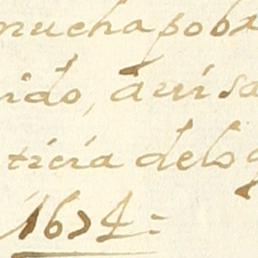 mucha pob
ido, avisa
ticia delo
1674=